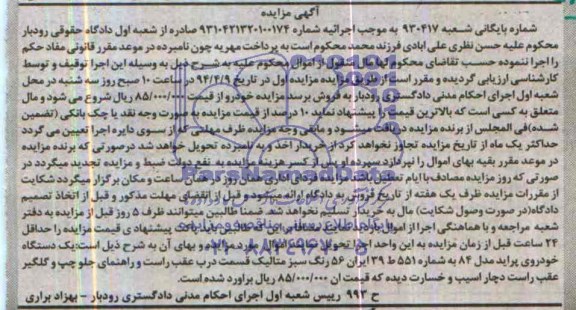 آگهی مزایده
شماره بایگانی شعبه ۹۳۰۴۱۷ به موجب اجرائیه شماره ۹۳۱۰۴۲۱۳۲۰۱۰۰۱۷۴ صادره از شعبه اول دادگاه حقوقی رودبار
محکوم علیه حسن نظری علی ابادی فرزند محمد محکوم است به پرداخت مهریه چون نامبرده در موعد مقرر قانونی مفاد حکم
را اجرا ننموده حسب تقاضای محکوم لها مال منقول از اموال محکوم علیه به شرح ذیل به وسیله این اجرا توقیف و توسط
کارشناسی ارزیابی گردیده و مقرر است از طریق مزایده مزایده اول در تاریخ ۹۴/۴/۹ در ساعت ۱۰ صبح روز سه شنبه در محل
شعبه اول اجرای احکام مدنی دادگستری رودبار به فروش برسد مزایده خودرو از قیمت ۸۵/۰۰۰/۰۰۰ ریال شروع می شود و مال
متعلق به کسی است که بالاترین قیمت را پیشنهاد نماید ۱۰ درصد از قیمت مزایده به صورت وجه نقد یا چک بانکی (تضمین
شده) فی المجلس از برنده مزایده دریافت میشود و مابقی وجه مزایده ظرف مهلتی که از سوی دایره اجرا تعیین می گردد
حداکثر یک ماه از تاریخ مزایده تجاوز نخواهد کرد از خریدار اخذ و به نامبرده تحویل خواهد شد درصورتی که برنده مزایده
در موعد مقرر بقیه بهای اموال را نپردازد سپرده او پس از کسر هزینه مزایده به نفع دولت ضبط و مزایده تجدید میگردد در
صورتی که روز مزایده مصادف با ایام تعطیل باشد مزایده روز بعد از تعطیل همان ساعت و مکان برگزار میگردد شکایت
از مقررات مزایده ظرف یک هفته از تاریخ فروش به دادگاه ارائه میشود و قبل از انقضای مهلت مذکور و قبل از اتخاذ تصمیم
دادگاه (در صورت وصول شکایت) مال به خریدار تسلیم نخواهد شد ضمنا طالبین میتوانند ظرف ۵ روز قبل از مزایده به دفتر
شعبه مراجعه و با هماهنگی اجرا از اموال پیشنهادی قیمت مزایده را حداقل
۲۴ ساعت قبل از زمان مزایده به این واحد اجرا تحویل اموال مورد مزایده و بهای آن به شرح ذیل است: یک دستگاه
خودروی پراید مدل ۸۴ به شماره ۵۵۱ ط ۳۹ ایران ۵۶ رنگ سبز متالیک قسمت درب عقب راست و راهنمای جلو چپ و گلگیر
عقب راست دچار اسیب و خسارت دیده که قیمت ان ۸۵/۰۰۰/۰۰۰ ریال براورد شده است.
ح ۹۹۳ رییس شعبه اول اجرای احکام مدنی دادگستری رودبار - بهزاد براری
ParsNamadData
۰۲۱-۸۸۳۴۹۶۷۰-۵